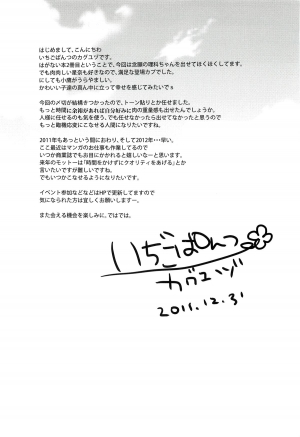 はじめまして、こんにちわ
いちごぱんつのカグユヅです。
はがない本2冊目ということで、今回は念願の理科ちゃんを出せてほくほくしてます。
でも肉肉しい星奈も好きなので、満足な登場カプでした。
にしても小鷹がうらやましい。
かわいい子達の真ん中に立って幸せを感じてみたいでｓ
今回の〆切が結構きつかったので、トーン貼りとか任せました。
もっと時間に余裕があれば自分好みに肉の重量感も出せたんでしょうか。
人様に任せるのも気を使う、でも任せなかったら出せてなかったと思うので
もっと臨機応変にこなせる人間になりたいですね。
2011年もあっという間におわり、そして2012年・・・早い。
ここ最近はマンガのお仕事も作業してるので
いつか商業誌でもお目にかかれると嬉しいなーと思います。
来年のモットーは「時間をかけずにクオリティをあげる」とか
言いたいですが難しいですね。
でもいつかこなせるようになりたいです。
イベント参加などなどはHPで更新してますので
気になられた方は宜しくお願いしますー。
また会える機会を楽しみに、ではでは。
いちごぱんつ
カグユヅ
2011.12.31